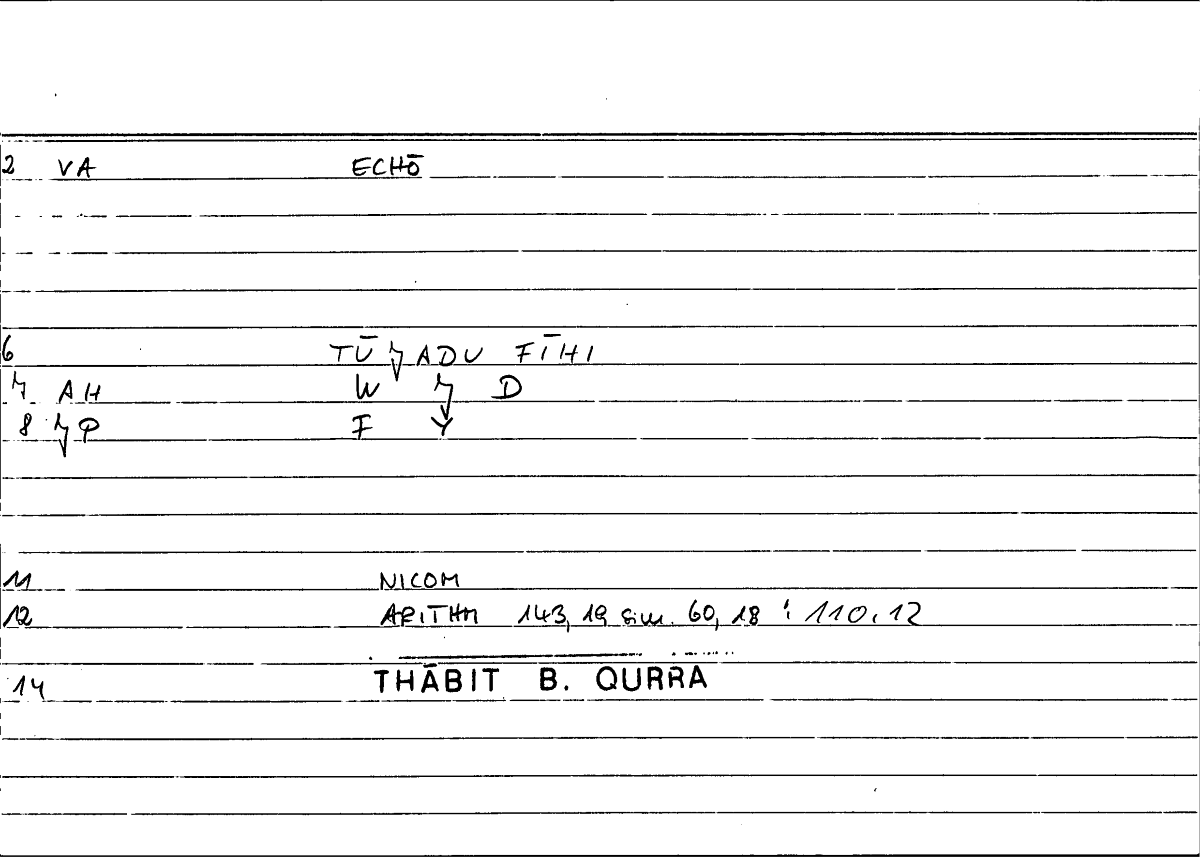 2 VA ECHŌ
6 TŪJADU FĪHI
7 AH W J D
8 JP F Y
11 NICOM
12 ARITHM 143, 19 sim. 60, 18 ; 110.12
14 THĀBIT B. QURRA